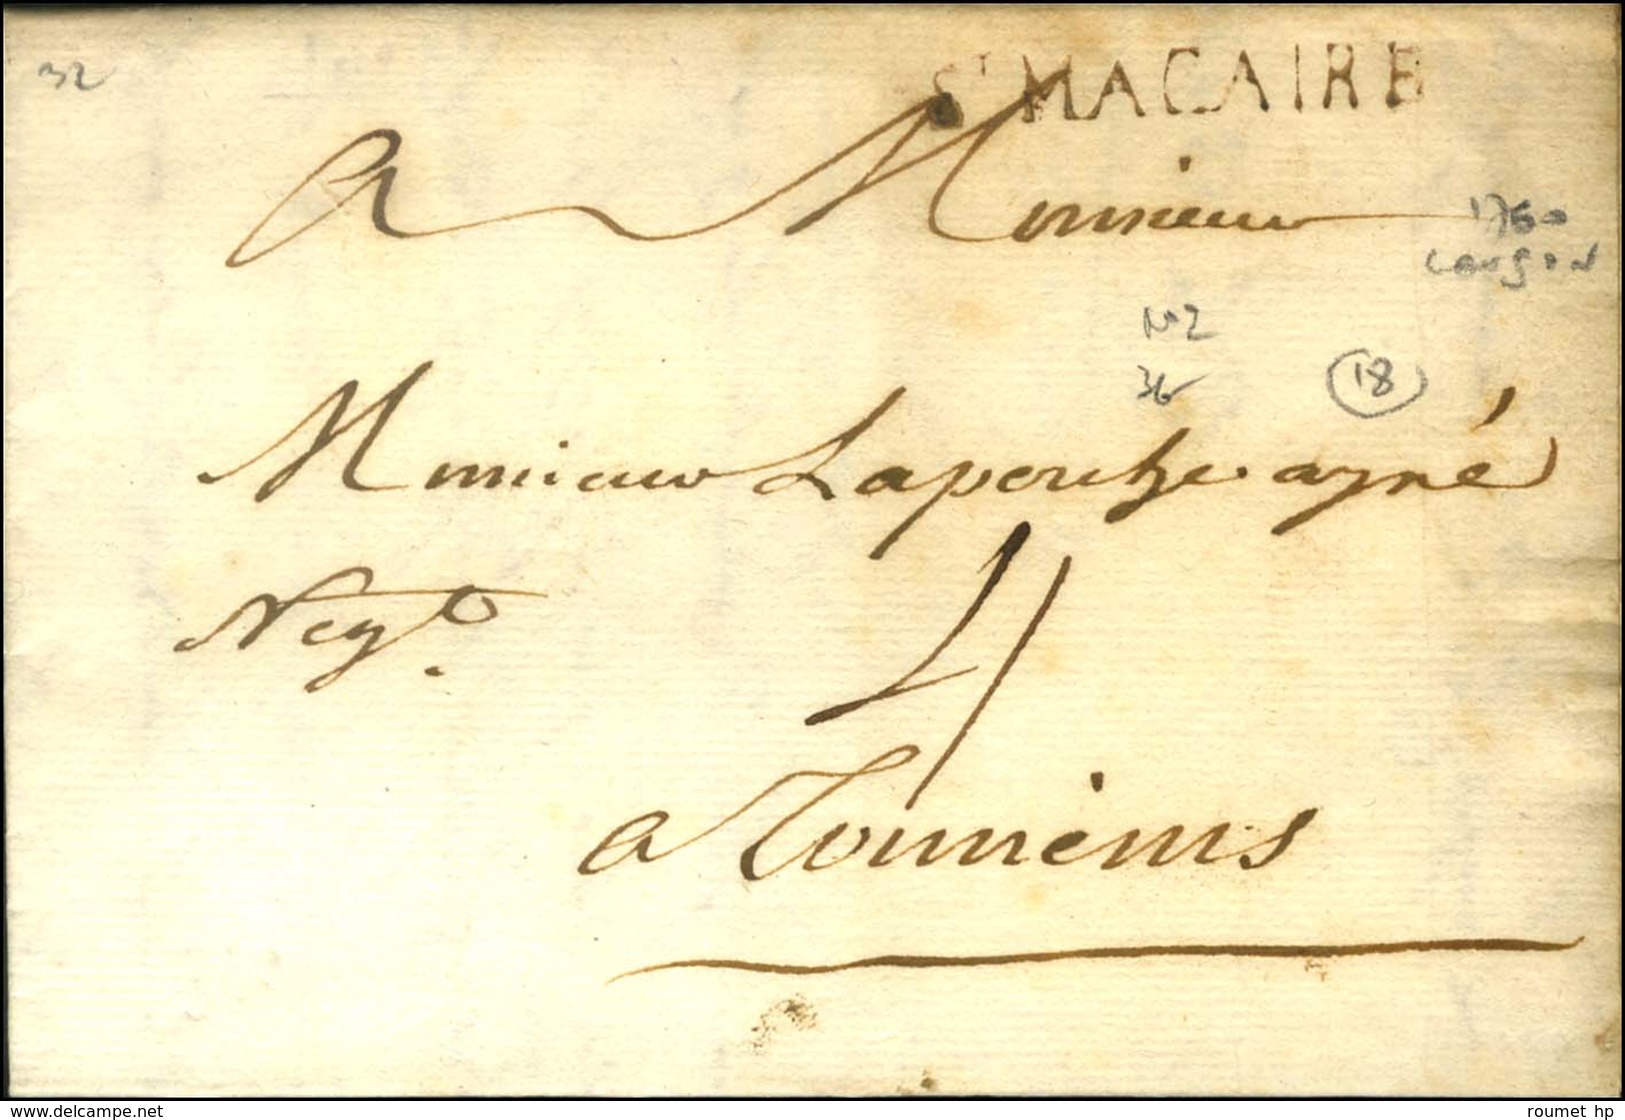 32
St MACAIRE
a Monsieur
1760
Langon
No 2
36
18
Monsieur Laperche ayné
Neg.t
4
a Tonneins
www.delcampe.net
roumet hp